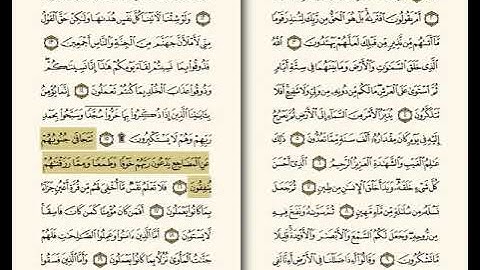 أَمْ يَقُولُونَ ٱفْتَرَىٰهُ بَلْ هُوَ ٱلْحَقُّ مِن رَّبِّكَ لِتُنذِرَ قَوْمًا
مَّآ أَتَىٰهُم مِّن نَّذِيرٍ مِّن قَبْلِكَ لَعَلَّهُمْ يَهْتَدُونَ ٣ ٱللَّهُ
ٱلَّذِى خَلَقَ ٱلسَّمَٰوَٰتِ وَٱلْأَرْضَ وَمَا بَيْنَهُمَا فِى سِتَّةِ أَيَّامٍ
ثُمَّ ٱسْتَوَىٰ عَلَى ٱلْعَرْشِ مَا لَكُم مِّن دُونِهِۦ مِن وَلِىٍّ وَلَا شَفِيعٍ أَفَلَا
تَتَذَكَّرُونَ ٤ يُدَبِّرُ ٱلْأَمْرَ مِنَ ٱلسَّمَآءِ إِلَى ٱلْأَرْضِ ثُمَّ يَعْرُجُ
إِلَيْهِ فِى يَوْمٍ كَانَ مِقْدَارُهُۥٓ أَلْفَ سَنَةٍ مِّمَّا تَعُدُّونَ ٥ ذَٰلِكَ
عَٰلِمُ ٱلْغَيْبِ وَٱلشَّهَٰدَةِ ٱلْعَزِيزُ ٱلرَّحِيمُ ٦ ٱلَّذِىٓ أَحْسَنَ
كُلَّ شَىْءٍ خَلَقَهُۥ وَبَدَأَ خَلْقَ ٱلْإِنسَٰنِ مِن طِينٍ ٧ ثُمَّ جَعَلَ
نَسْلَهُۥ مِن سُلَٰلَةٍ مِّن مَّآءٍ مَّهِينٍ ٨ ثُمَّ سَوَّىٰهُ وَنَفَخَ فِيهِ
مِن رُّوحِهِۦ وَجَعَلَ لَكُمُ ٱلسَّمْعَ وَٱلْأَبْصَٰرَ وَٱلْأَفْـِٔدَةَ قَلِيلًا
مَّا تَشْكُرُونَ ٩ وَقَالُوٓا۟ أَءِذَا ضَلَلْنَا فِى ٱلْأَرْضِ أَءِنَّا لَفِى
١٢ وَلَوْ شِئْنَا لَءَاتَيْنَا كُلَّ نَفْسٍ هُدَىٰهَا وَلَٰكِنْ حَقَّ ٱلْقَوْلُ
مِنِّى لَأَمْلَأَنَّ جَهَنَّمَ مِنَ ٱلْجِنَّةِ وَٱلنَّاسِ أَجْمَعِينَ ١٣
فَذُوقُوا۟ بِمَا نَسِيتُمْ لِقَآءَ يَوْمِكُمْ هَٰذَآ إِنَّا نَسِينَٰكُمْ
وَذُوقُوا۟ عَذَابَ ٱلْخُلْدِ بِمَا كُنتُمْ تَعْمَلُونَ ١٤ إِنَّمَا يُؤْمِنُ
بِـَٔايَٰتِنَا ٱلَّذِينَ إِذَا ذُكِّرُوا۟ بِهَا خَرُّوا۟ سُجَّدًا وَسَبَّحُوا۟ بِحَمْدِ
رَبِّهِمْ وَهُمْ لَا يَسْتَكْبِرُونَ ۩ ١٥ تَتَجَافَىٰ جُنُوبُهُمْ
عَنِ ٱلْمَضَاجِعِ يَدْعُونَ رَبَّهُمْ خَوْفًا وَطَمَعًا وَمِمَّا رَزَقْنَٰهُمْ
يُنفِقُونَ ١٦ فَلَا تَعْلَمُ نَفْسٌ مَّآ أُخْفِىَ لَهُم مِّن قُرَّةِ أَعْيُنٍ جَزَآءًۢ
بِمَا كَانُوا۟ يَعْمَلُونَ ١٧ أَفَمَن كَانَ مُؤْمِنًا كَمَن كَانَ فَاسِقًا
لَّا يَسْتَوُۥنَ ١٨ أَمَّا ٱلَّذِينَ ءَامَنُوا۟ وَعَمِلُوا۟ ٱلصَّٰلِحَٰتِ فَلَهُمْ
جَنَّٰتُ ٱلْمَأْوَىٰ نُزُلًۢا بِمَا كَانُوا۟ يَعْمَلُونَ ١٩ وَأَمَّا ٱلَّذِينَ فَسَقُوا۟